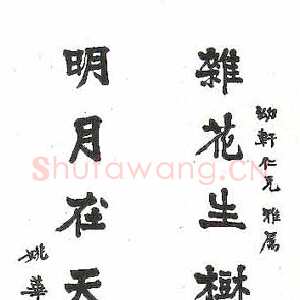 幼軒仁兄雅屬
雜花生樹
明月在天
姚華
Shufawang.CN